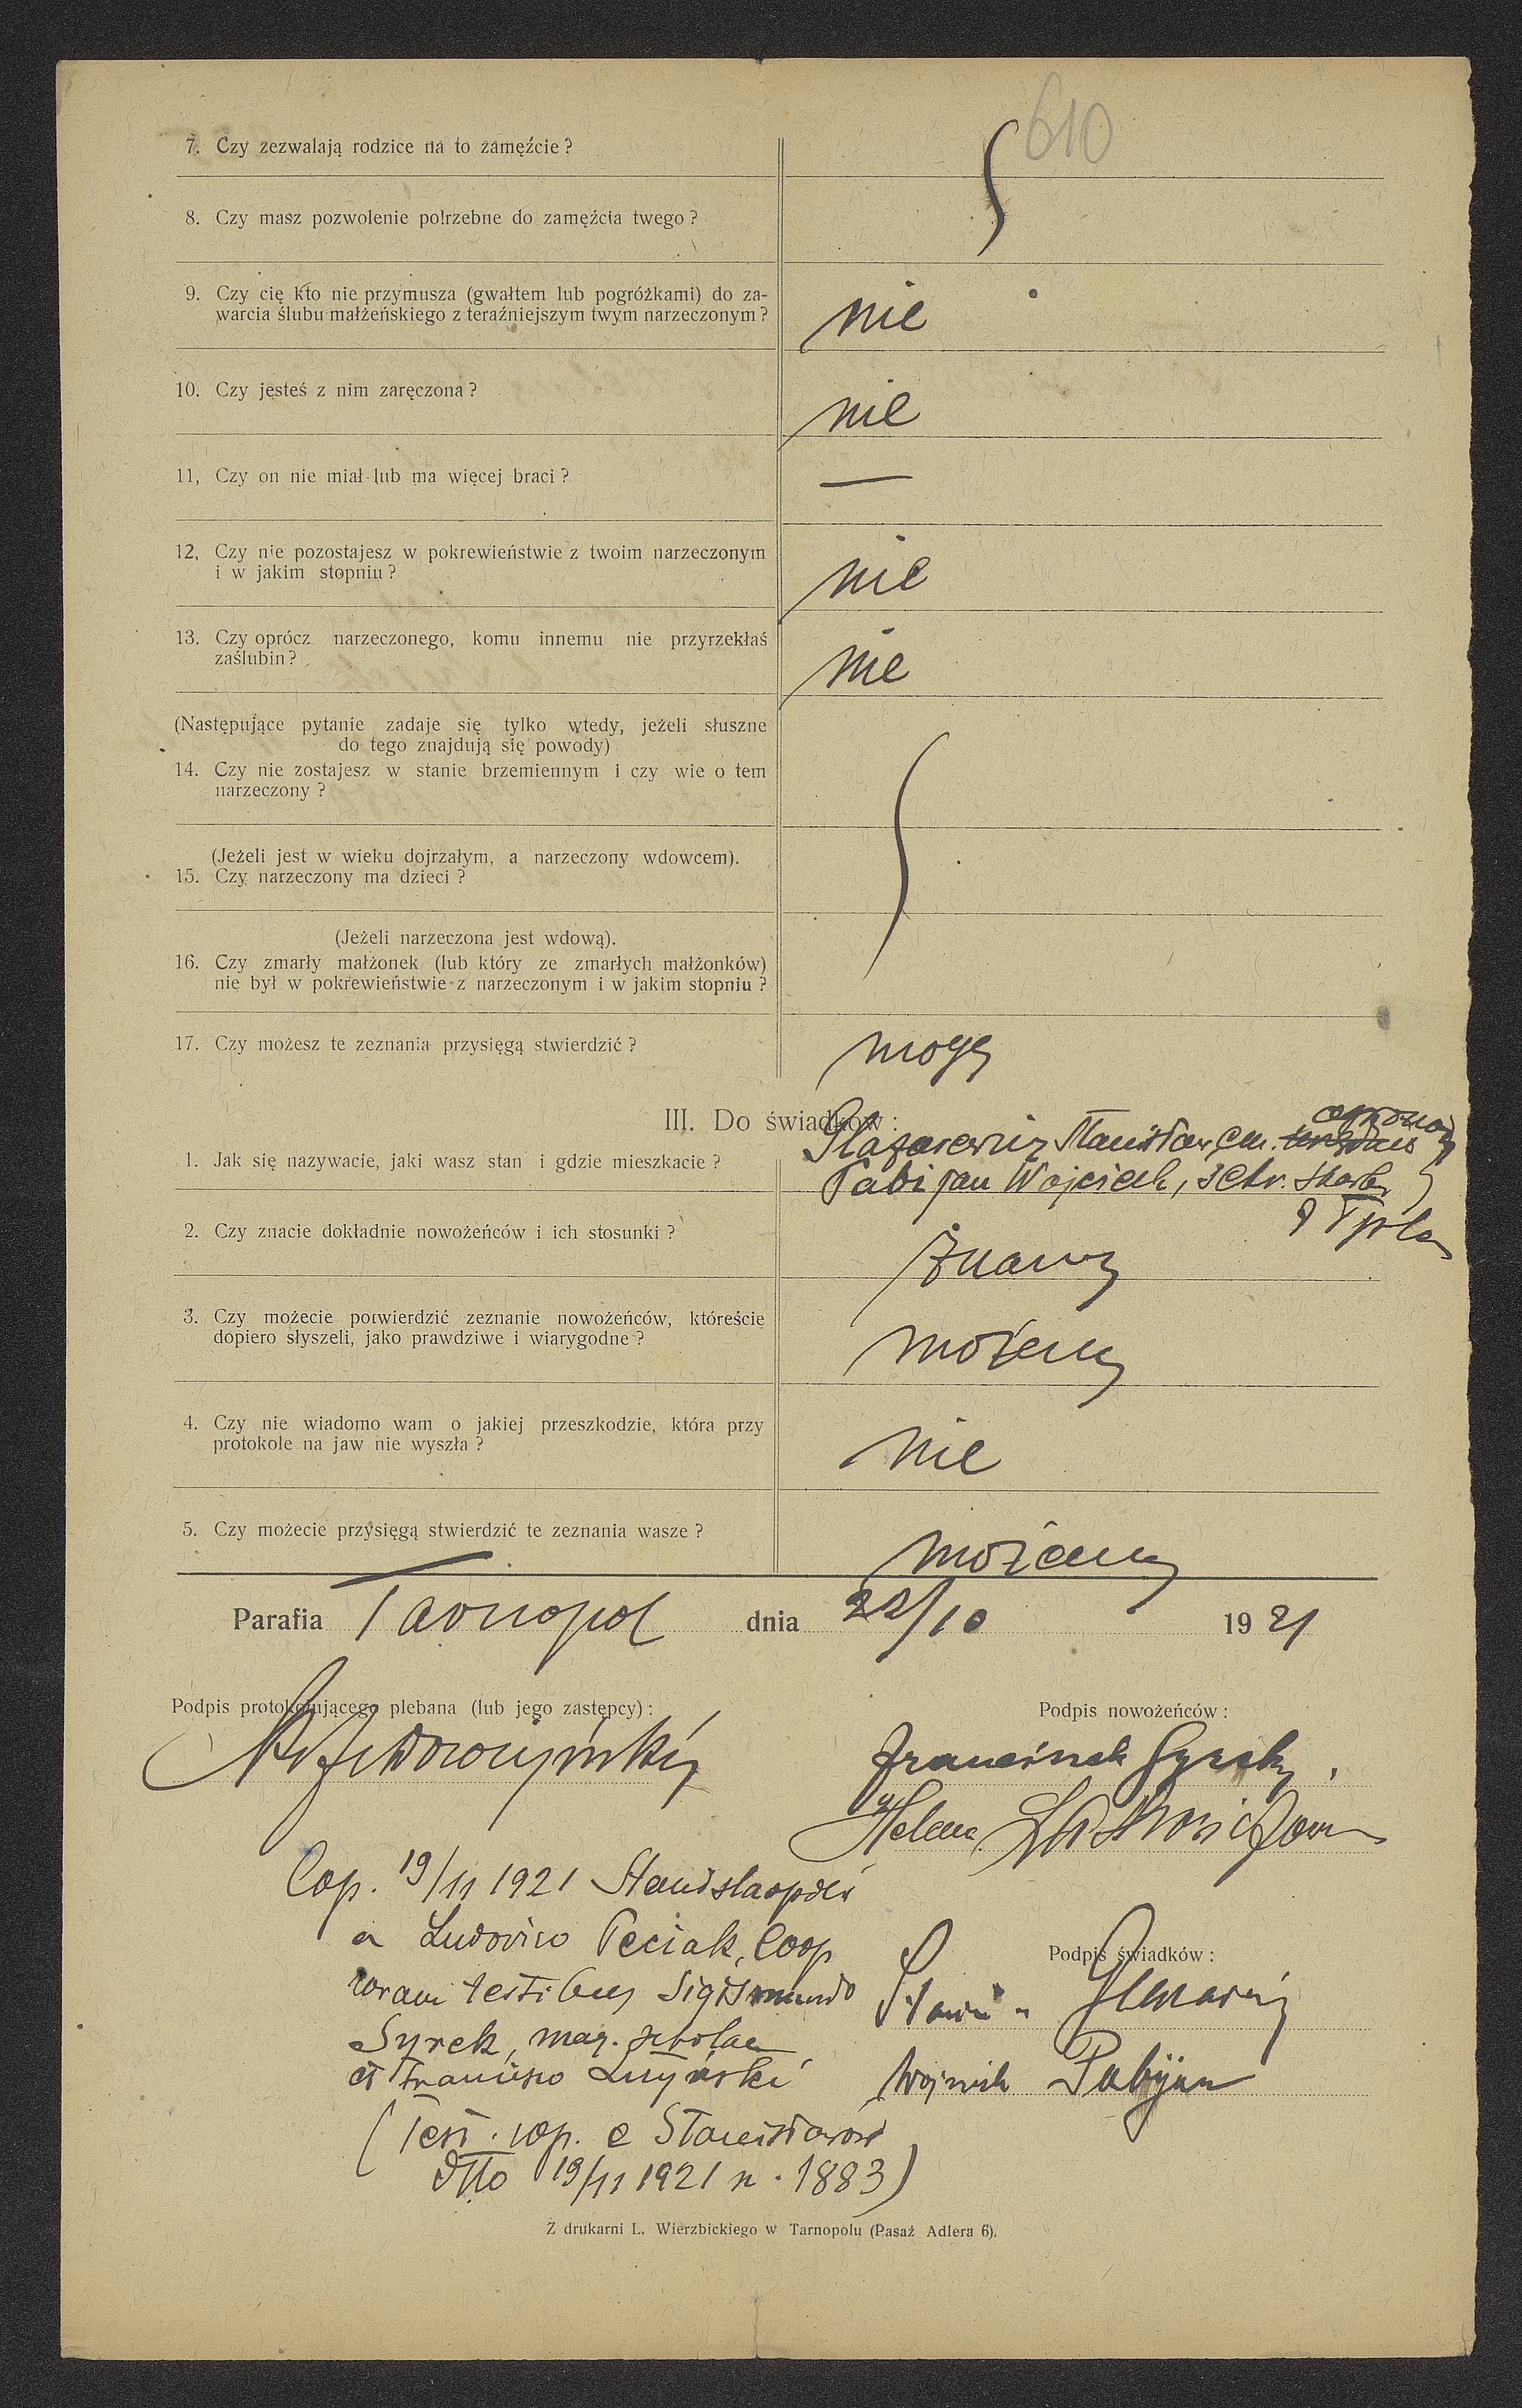 610
7. Czy zezwalają rodzice na to zamęźcie ?
8. Czy masz pozwolenie potrzebne do zamęźcia twego ?
9. Czy cię kto nie przymusza (gwałtem lub pogróżkami) do za-
warcia ślubu małżeńskiego z teraźniejszym twym narzeczonym ?
nie
10. Czy jesteś z nim zaręczona ?
nie
11, Czy on nie miał lub ma więcej braci ?
—
12, Czy nie pozostajesz w pokrewieństwie z twoim narzeczonym
i w jakim stopniu ?
nie
13. Czy oprócz narzeczonego, komu innemu nie przyrzekłaś
zaślubin ?
nie
(Następujące pytanie zadaje się tylko wtedy, jeżeli słuszne
do tego znajdują się powody)
14. Czy nie zostajesz w stanie brzemiennym i czy wie o tem
narzeczony ?
(Jeżeli jest w wieku dojrzałym, a narzeczony wdowcem).
15. Czy narzeczony ma dzieci ?
(Jeżeli narzeczona jest wdową).
16. Czy zmarły małżonek (lub który ze zmarłych małżonków)
nie był w pokrewieństwie z narzeczonym i w jakim stopniu ?
17. Czy możesz te zeznania przysięgą stwierdzić ?
mogę
III. Do świadków :
1. Jak się nazywacie, jaki wasz stan i gdzie mieszkacie ?
Stanisław, em.
Pabijan Wojciech,
2. Czy znacie dokładnie nowożeńców i ich stosunki ?
znamy
3. Czy możecie potwierdzić zeznanie nowożeńców, któreście
dopiero słyszeli, jako prawdziwe i wiarygodne ?
możemy
4. Czy nie wiadomo wam o jakiej przeszkodzie, która przy
protokole na jaw nie wyszła ?
nie
5. Czy możecie przysięgą stwierdzić te zeznania wasze ?
możemy
Parafia Tarnopol dnia 22/10 1921
Podpis protokołującego plebana (lub jego zastępcy) :
Podpis nowożeńców :
Franciszek
Helena
Cop. 19/11 1921 Stanislaopoli
a Ludovico Peciak, Coop
coram testibus Sigismundo
Syrek, mag. scholae
et Francisco
Podpis świadków :
Wojciech Pabijan
(Test. cop. e Stanisławów
dtto 19/11 1921 n. 1883)
Z drukarni L. Wierzbickiego w Tarnopolu (Pasaż Adlera 6).